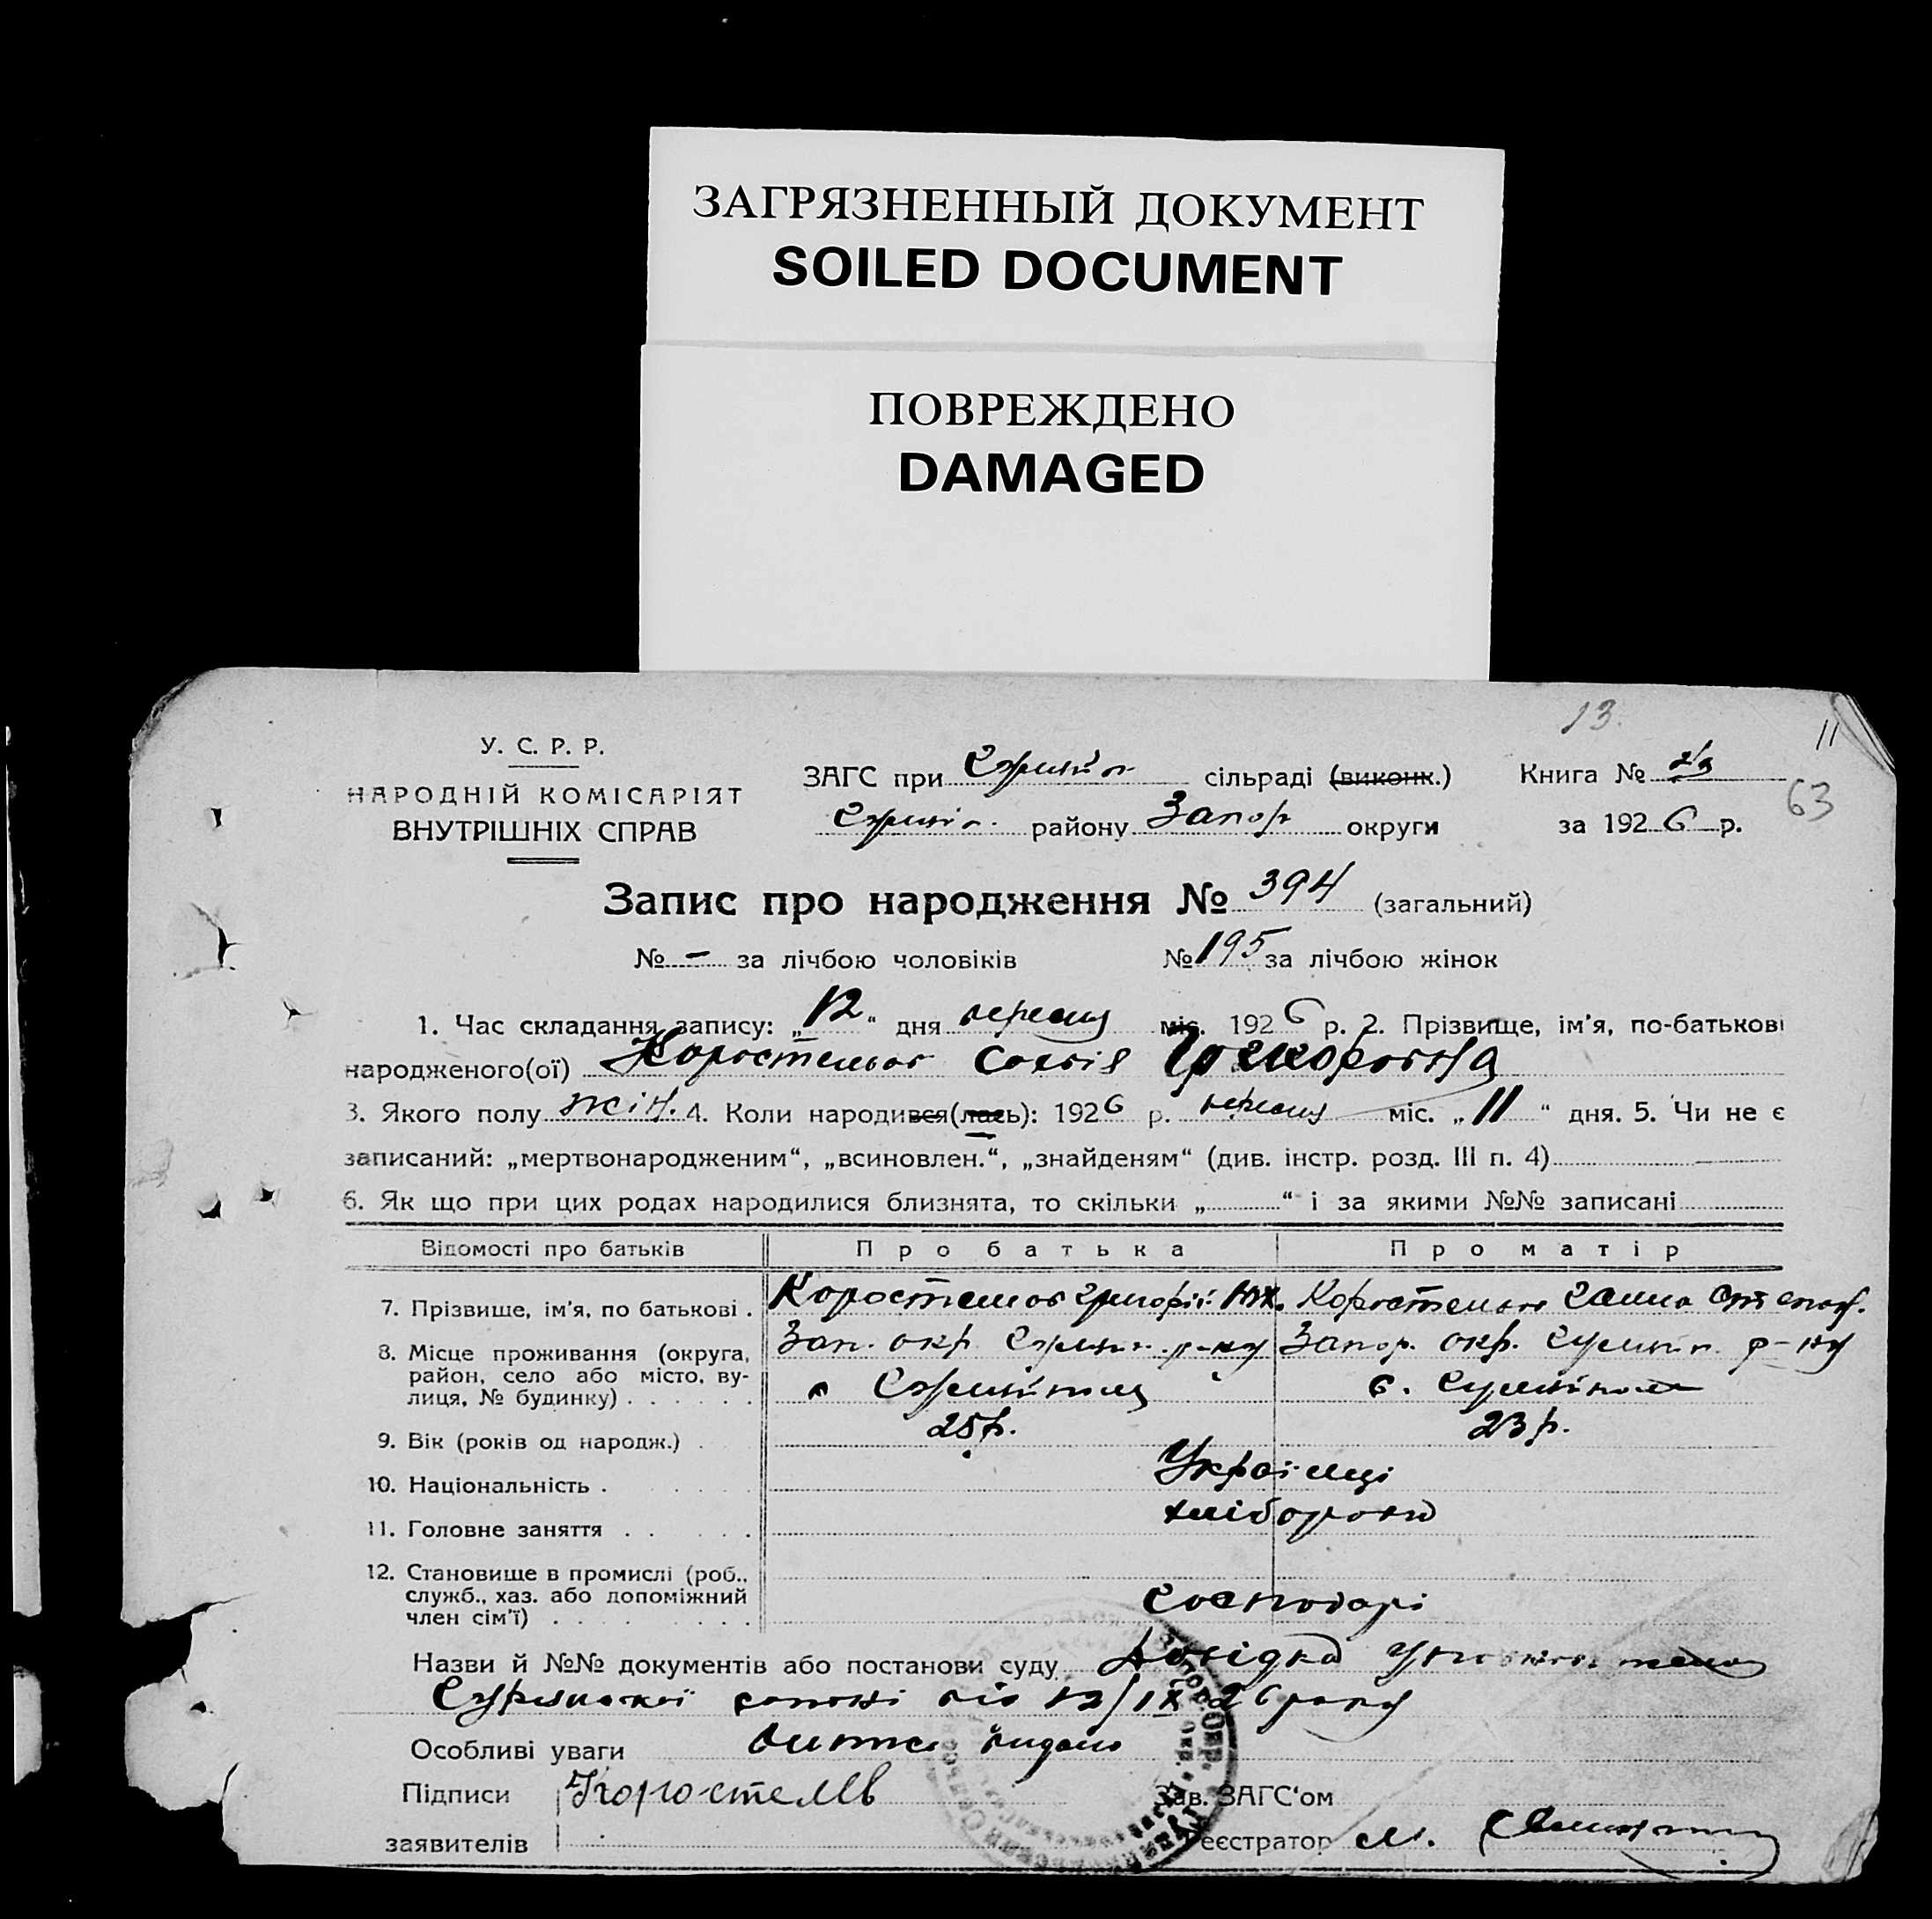 ЗАГРЯЗНЕННЫЙ ДОКУМЕНТ
SOILED DOCUMENT
ПОВРЕЖДЕНО
DAMAGED
13.
11
63
У. С. Р. Р.
НАРОДНІЙ КОМІСАРІЯТ
ВНУТРІШНІХ СПРАВ
ЗАГС при сільраді (виконк.)
району Запор округи
Книга №
за 1926 р.
Запис про народження № 394 (загальний)
№ - за лічбою чоловіків № 195 за лічбою жінок
1. Час складання запису: „12“ дня вересня міс. 1926 р. 2. Прізвище, ім'я, по-батькові
народженого(ої) Коростельов Софія Григоровна
3. Якого полу жін. 4. Коли народився(лась): 1926 р. вересня міс. „11“ дня. 5. Чи не є
записаний: „мертвонародженим“, „всиновлен.“, „знайденям“ (див. інстр. розд. III п. 4)
6. Як що при цих родах народилися близнята, то скільки „ “ і за якими №№ записані
Відомості про батьків Про батька Про матір
7. Прізвище, ім'я, по батькові . Коростельов Григорій Коростельов Ганна
8. Місце проживання (округа, район, село або місто, вулиця, № будинку) Зап. окр. р-ну Запор. окр. р-ну
с.
9. Вік (років од народж.) . 25 р. 23 р.
10. Національність . Українці
11. Головне заняття . . хлібороби
12. Становище в промислі (роб.,
служб., хаз. або допоміжний
член сім'ї) Господарі
Назви й №№ документів або постанови суду Довідка
від 12/IX 26 року
Особливі уваги видано
Підписи Коростелів Зав. ЗАГС'ом
заявителів Реєстратор М.